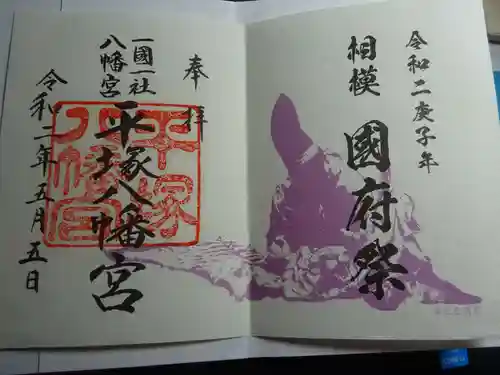 令和二庚子年
相模 國府祭
奉拝
一國一社
八幡宮
平塚八幡宮
令和二年五月五日
平塚
八幡宮